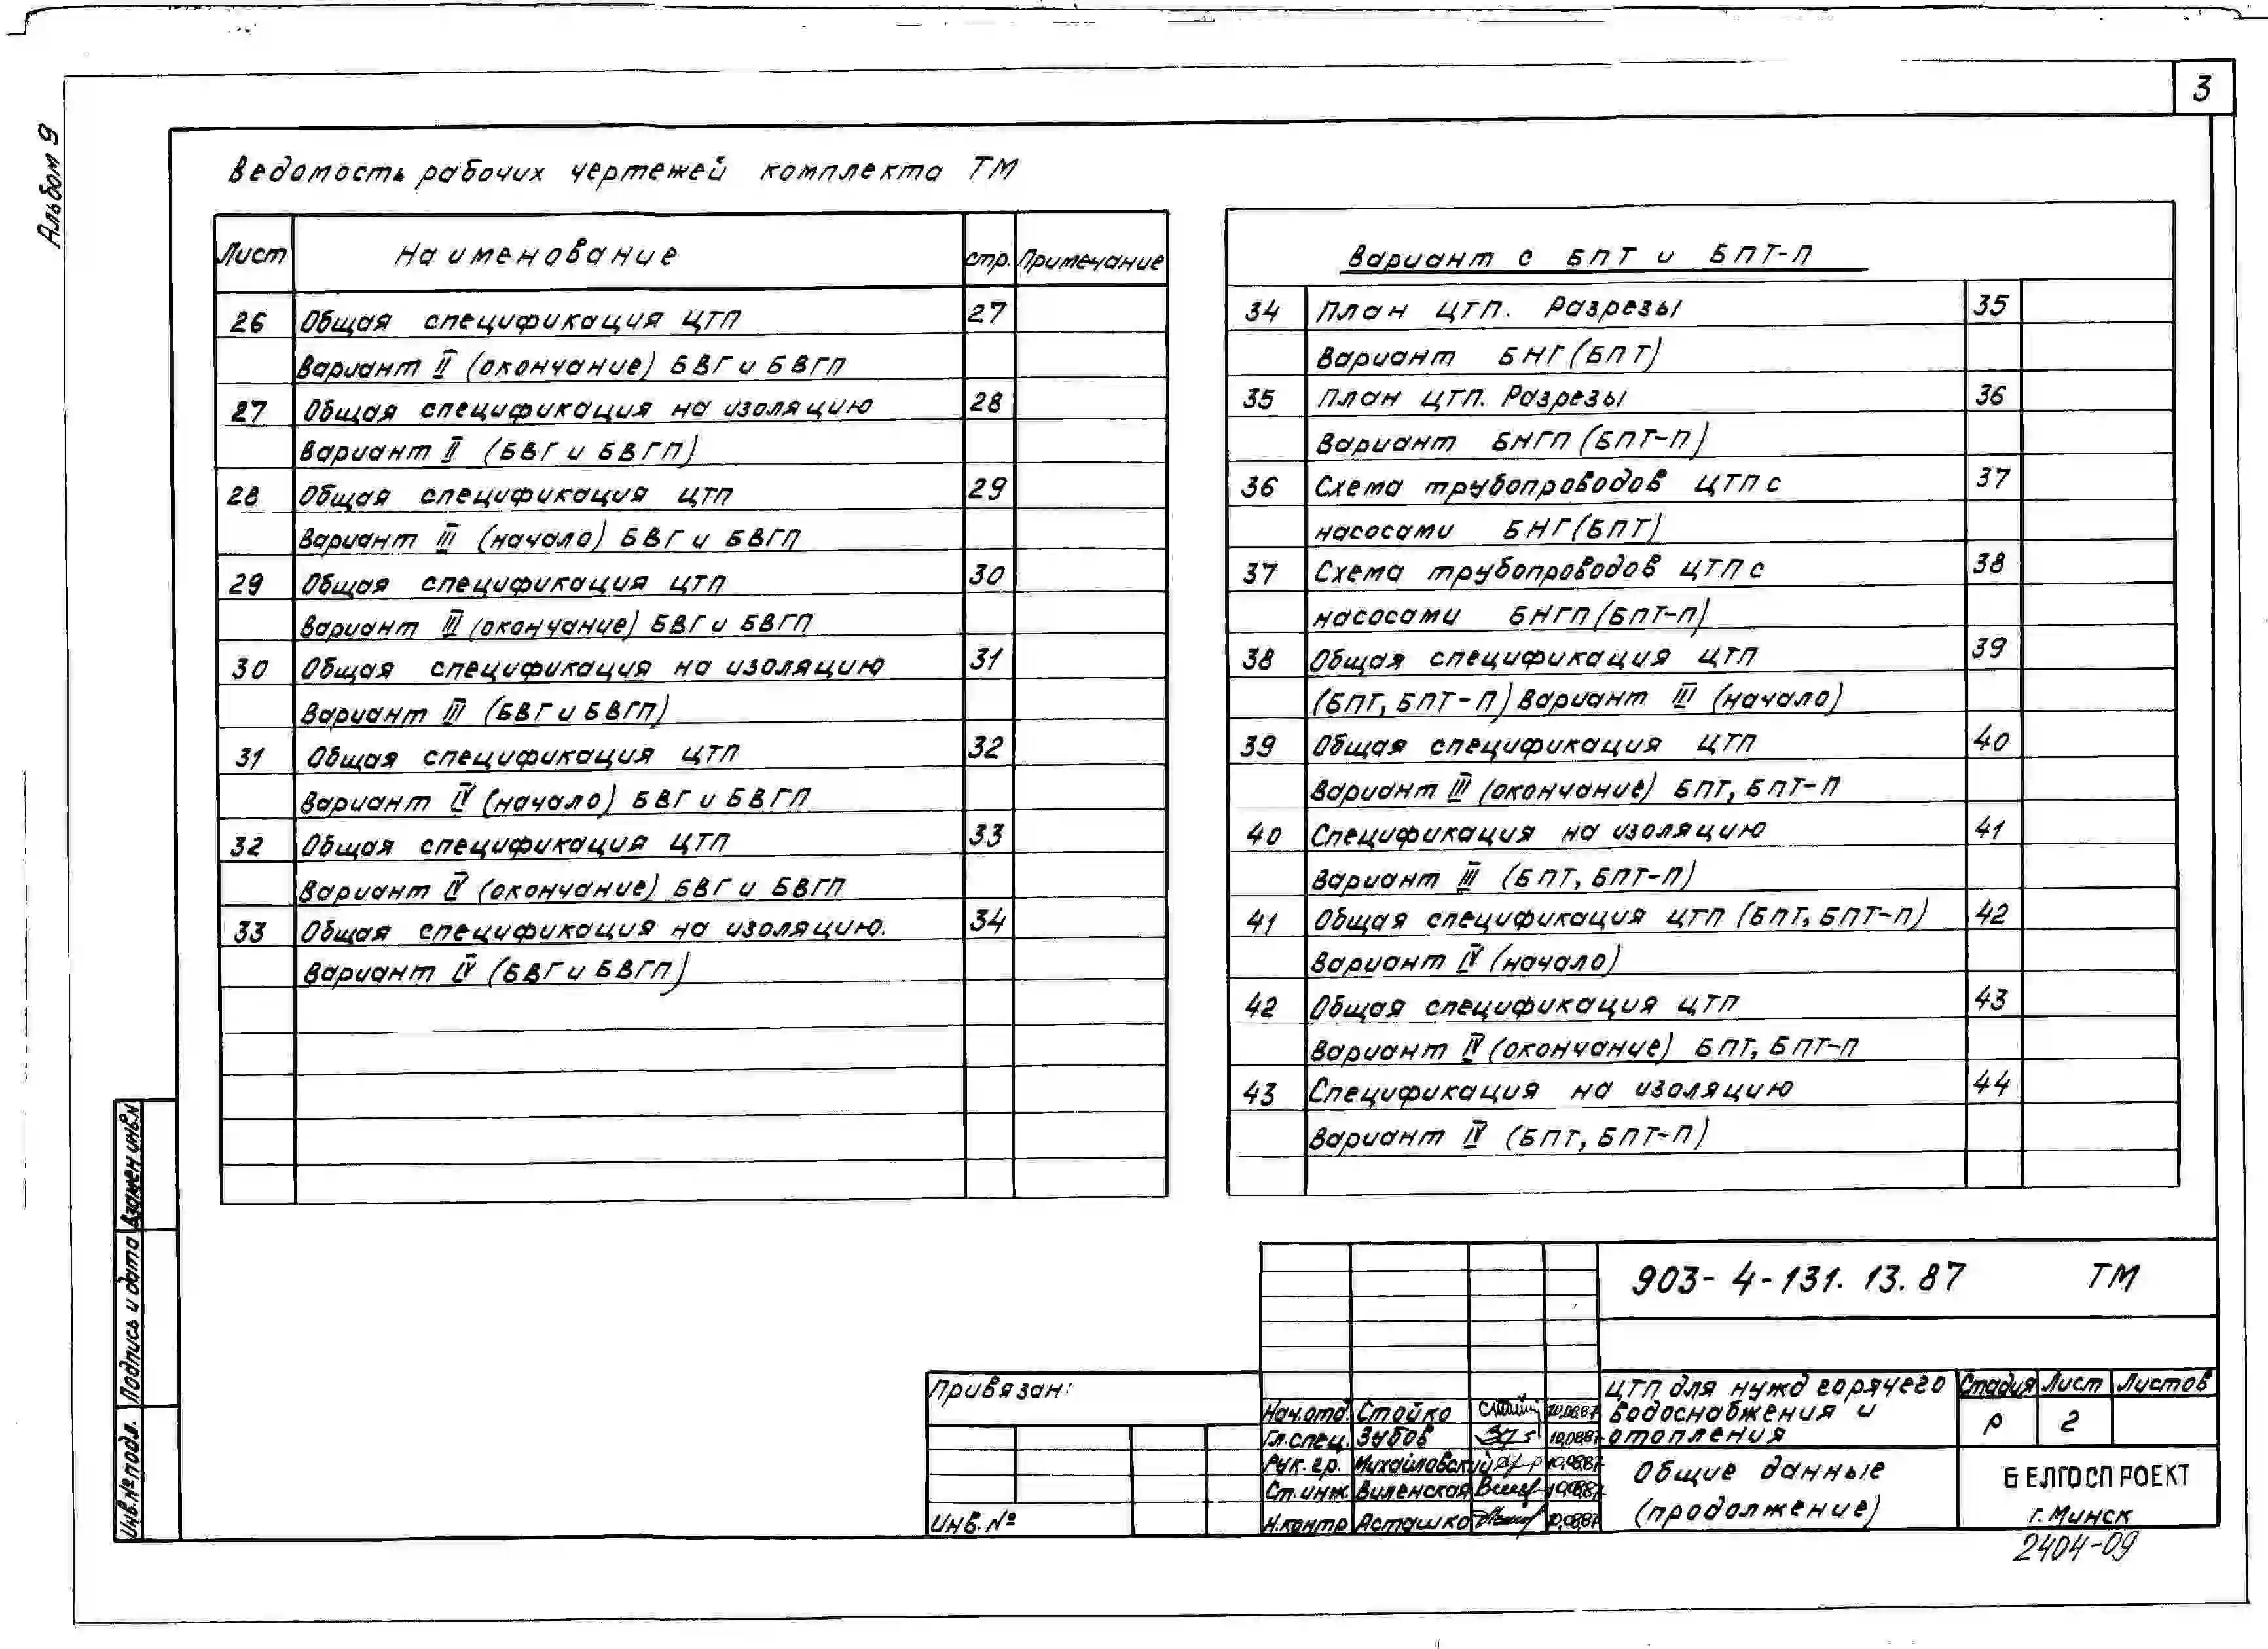 3
Альбом 9
Ведомость рабочих чертежей комплекта ТМ
Лист Наименование стр. Примечание
26 Общая спецификация ЦТП 27
Вариант II (окончание) БВГ и БВГП
27 Общая спецификация на изоляцию 28
Вариант II (БВГ и БВГП)
28 Общая спецификация ЦТП 29
Вариант III (начало) БВГ и БВГП
29 Общая спецификация ЦТП 30
Вариант III (окончание) БВГ и БВГП
30 Общая спецификация на изоляцию 31
Вариант III (БВГ и БВГП)
31 Общая спецификация ЦТП 32
Вариант IV (начало) БВГ и БВГП
32 Общая спецификация ЦТП 33
Вариант IV (окончание) БВГ и БВГП
33 Общая спецификация на изоляцию. 34
Вариант IV (БВГ и БВГП)
Вариант с БПТ и БПТ-П
34 План ЦТП. Разрезы 35
Вариант БНГ (БПТ)
35 План ЦТП. Разрезы 36
Вариант БНГП (БПТ-П)
36 Схема трубопроводов ЦТП с 37
насосами БНГ (БПТ)
37 Схема трубопроводов ЦТП с 38
насосами БНГП (БПТ-П)
38 Общая спецификация ЦТП 39
(БПТ, БПТ-П) Вариант III (начало)
39 Общая спецификация ЦТП 40
Вариант III (окончание) БПТ, БПТ-П
40 Спецификация на изоляцию 41
Вариант III (БПТ, БПТ-П)
41 Общая спецификация ЦТП (БПТ, БПТ-П) 42
Вариант IV (начало)
42 Общая спецификация ЦТП 43
Вариант IV (окончание) БПТ, БПТ-П
43 Спецификация на изоляцию 44
Вариант IV (БПТ, БПТ-П)
Инв.№подл. Подпись и дата Взамен инв.№
Привязан:
Инв. №
Нач.отд. Стойко 10.08.87
Гл.спец. Зубов 10.08.87
Рук. гр. Михайловский 10.08.87
Ст.инж. Виленская 10.08.87
Н.контр Асташко 10.08.87
903-4-131.13.87 ТМ
ЦТП для нужд горячего
водоснабжения и
отопления
Стадия Лист Листов
Р 2
Общие данные
(продолжение)
БЕЛГОСПРОЕКТ
г. Минск
2404-09